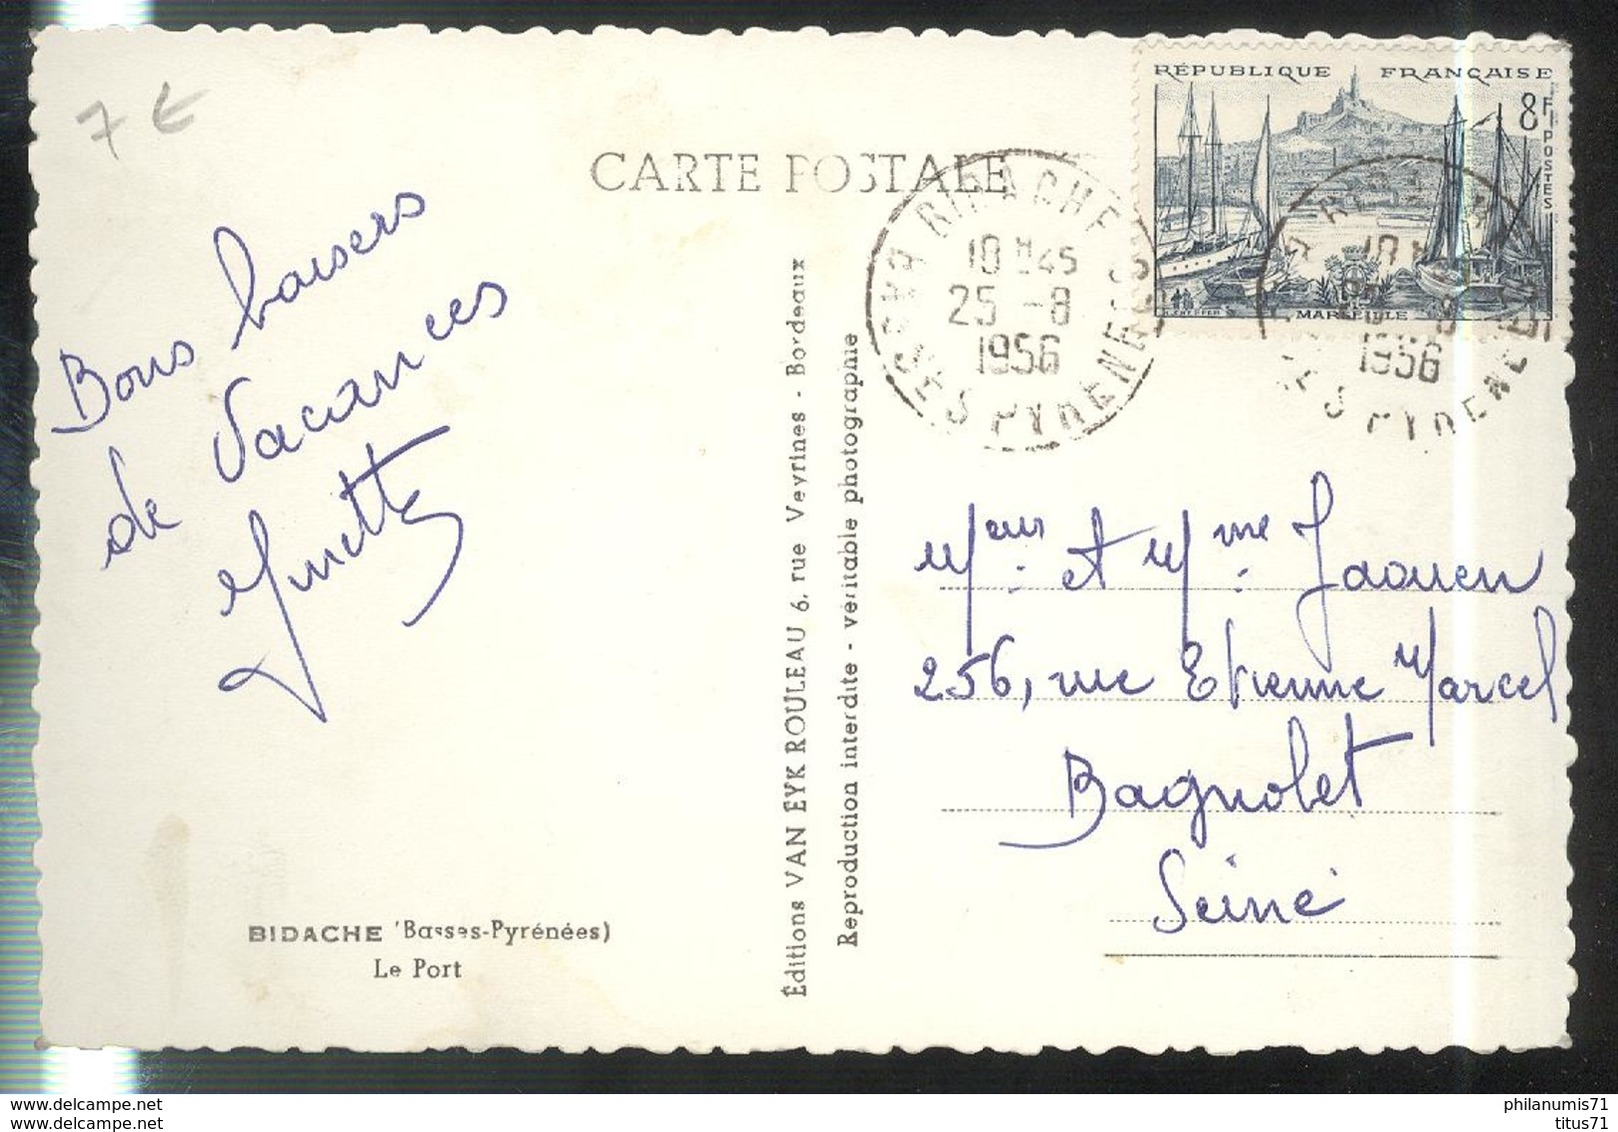 7 €
CARTE POSTALE
RÉPUBLIQUE FRANÇAISE
8F
POSTES
MARSEILLE
BIDACHE
10 H 45
25 -8
1956
BSES PYRENEES
1956
Bons baisers
de Vacances
Ginette
Éditions VAN EYK ROULEAU 6, rue Veyrines - Bordeaux
Reproduction interdite - véritable photographie
Meur. et Mme. Jaouen
256, rue Etienne Marcel
Bagnolet
Seine
BIDACHE (Basses-Pyrénées)
Le Port
www.delcampe.net
www.delcampe.net
philanumis71
titus71